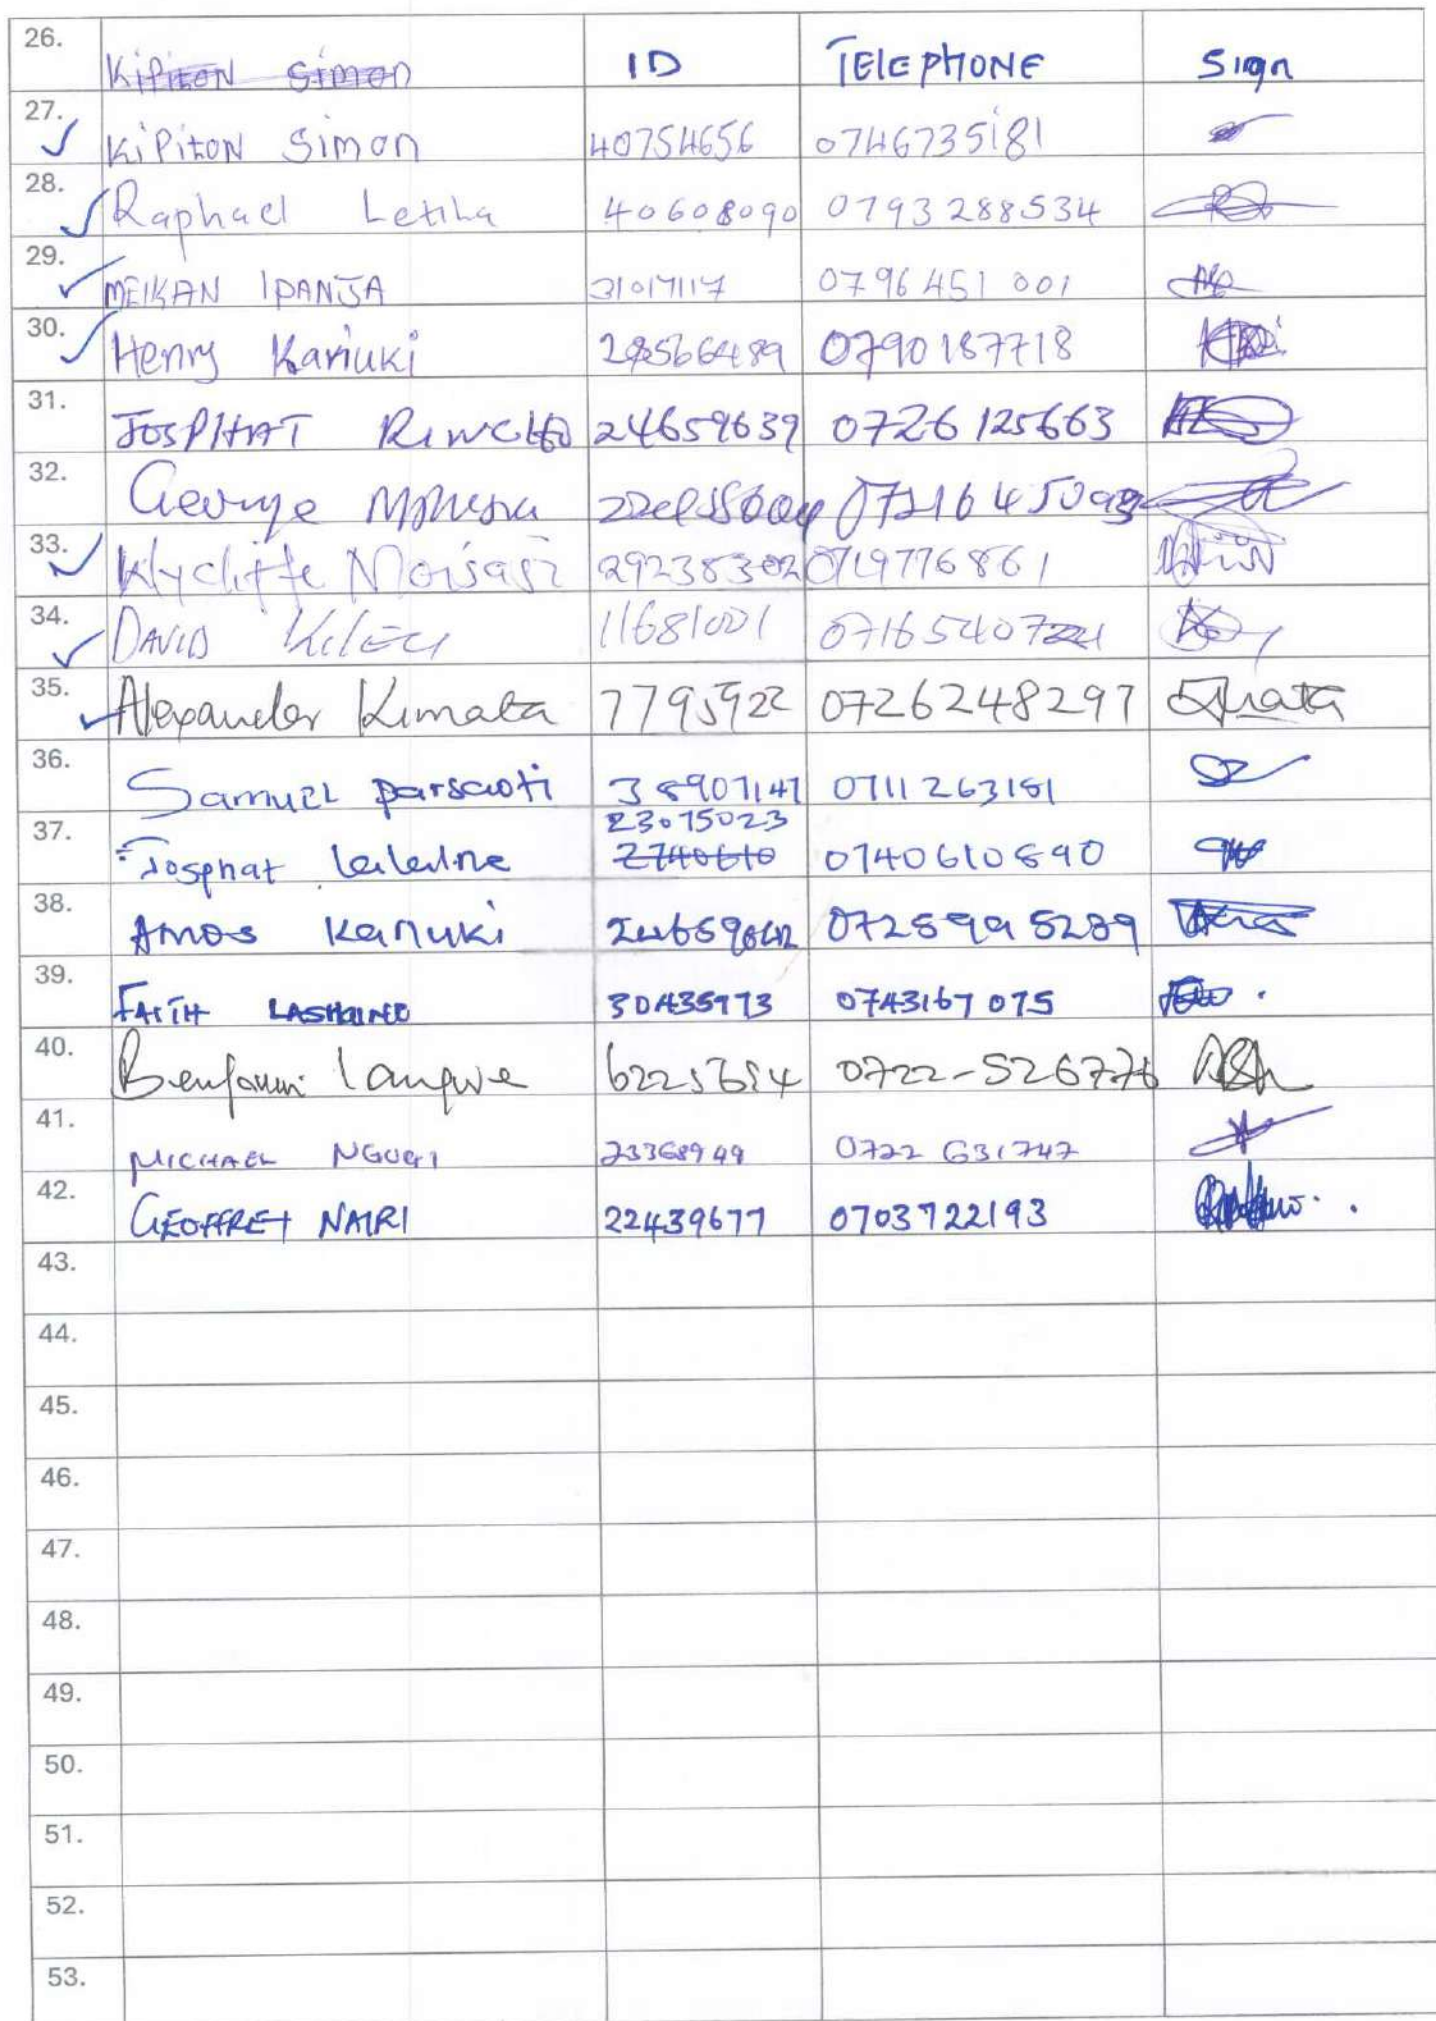 26. Kipiton Simon ID TELEPHONE Sign
27. Kipiton Simon 40754656 0746735181
28. Raphael Letiha 40608090 0793288534
29. MEIKAN IPANJA 31017117 0796451001
30. Henry Kariuki 28566489 0790187718
31. JOSPHAT 24659639 0726125663
32. George
33. Wycliffe Moisasi 29238302 0719776861
34. DAVID 11681001
35. Alexander Kimata 7795922 0726248297
36. Samuel parsaoti 38907147 0711263181
23075023
37. Josphat 2740610 0740610890
38. Amos Kariuki 24659642 0725995289
39. FAITH 30435973 0743167075
40. Benjamin 0722-526776
41. MICHAEL NGUGI 23368949 0722 631747
42. GEOFFREY NAIRI 22439677 0703722193
43.
44.
45.
46.
47.
48.
49.
50.
51.
52.
53.